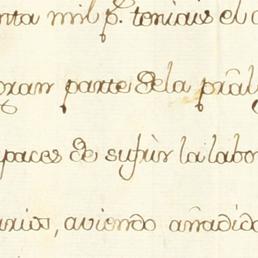 nta mil p.^s teniais el
gran parte dela prâl
paces de sufrir la labor
arios, aviendo añadido